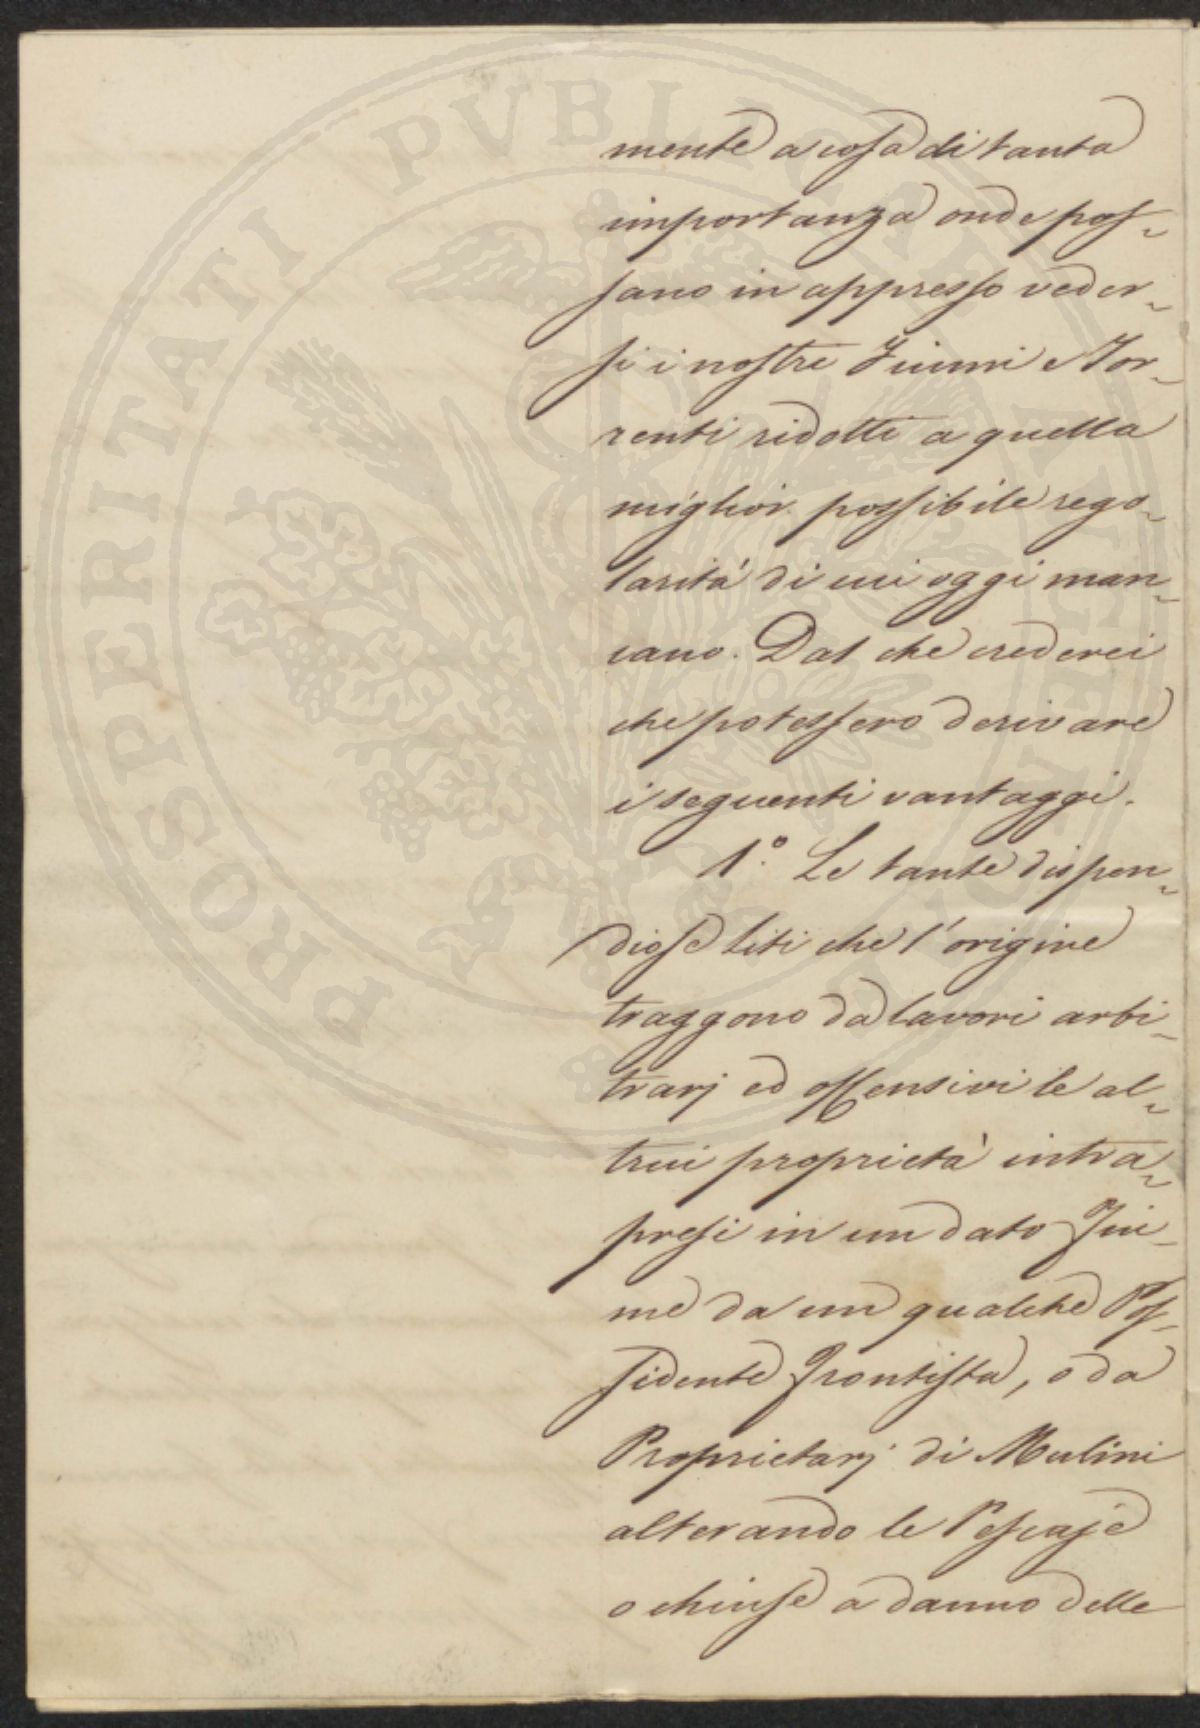 mente a cosa di tanta
importanza onde pos-
sano in appresso veder-
si i nostri Fiumi e Tor-
renti ridotti a quella
miglior possibile rego-
larità di cui oggi man-
cano. Dal che crederei
che potessero derivare
i seguenti vantaggi.
1.° Le tante dispen-
diose liti che l'origine
traggono da lavori arbi-
trarj ed offensivi le al-
trui proprietà intra-
presi in un dato Fiu-
me da un qualche Pos-
sidente frontista, o da
Proprietarj di Mulini
alterando le Pescaje
o chiuse a danno delle
PROSPERITATI PVBLICAE AVGENDAE